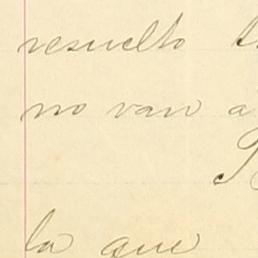 resuelto
no van a
la que